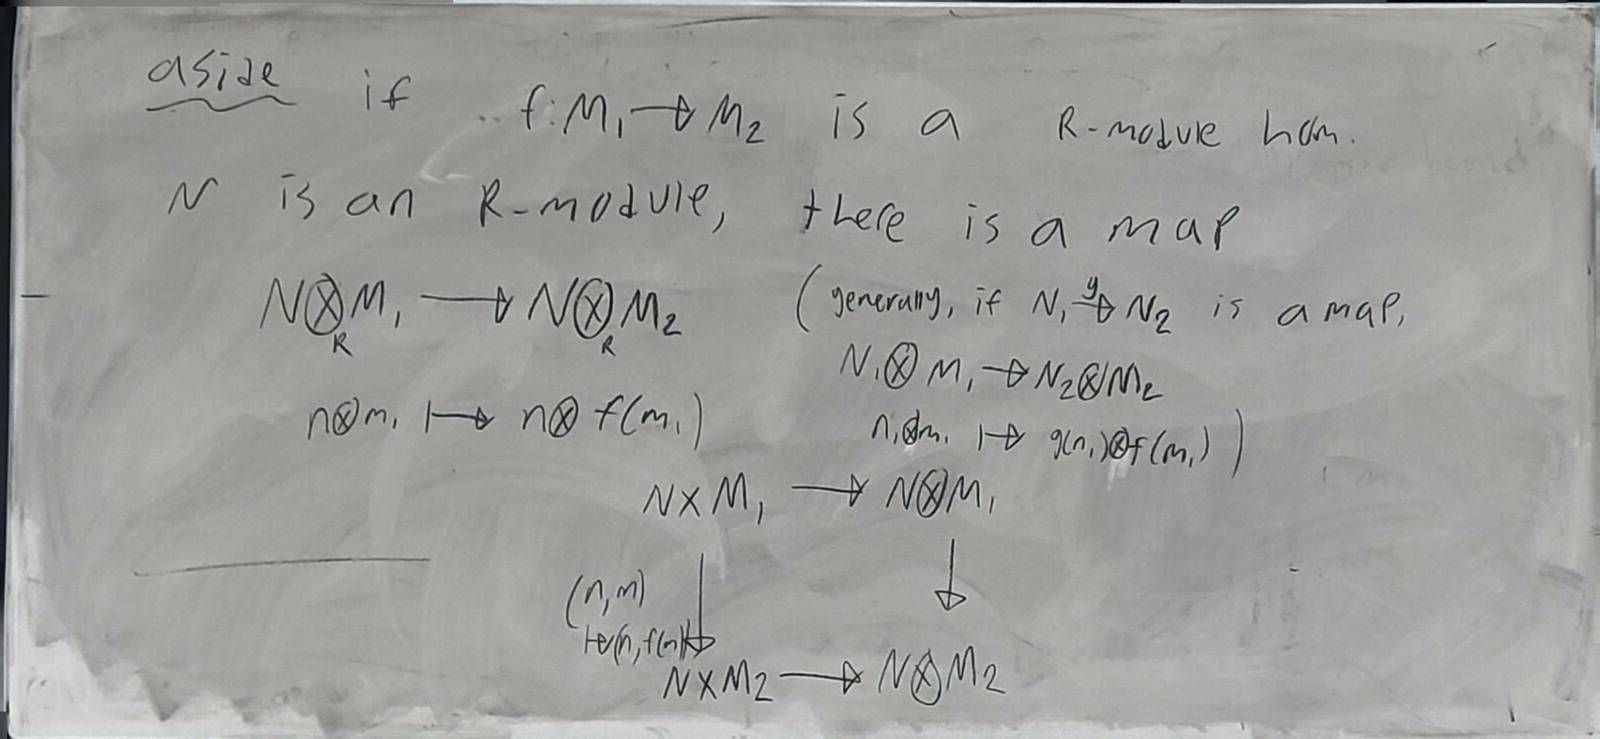 aside if f: M₁ → M₂ is a R-module hom.
N is an R-module, there is a map
N⊗_R M₁ → N⊗_R M₂
n⊗m₁ ↦ n⊗f(m₁)
(generally, if N₁ →^g N₂ is a map,
N₁⊗M₁ → N₂⊗M₂
n₁⊗m₁ ↦ g(n₁)⊗f(m₁))
N×M₁ → N⊗M₁
↓ ↓
(n,m)
↦(n,f(m))
N×M₂ → N⊗M₂